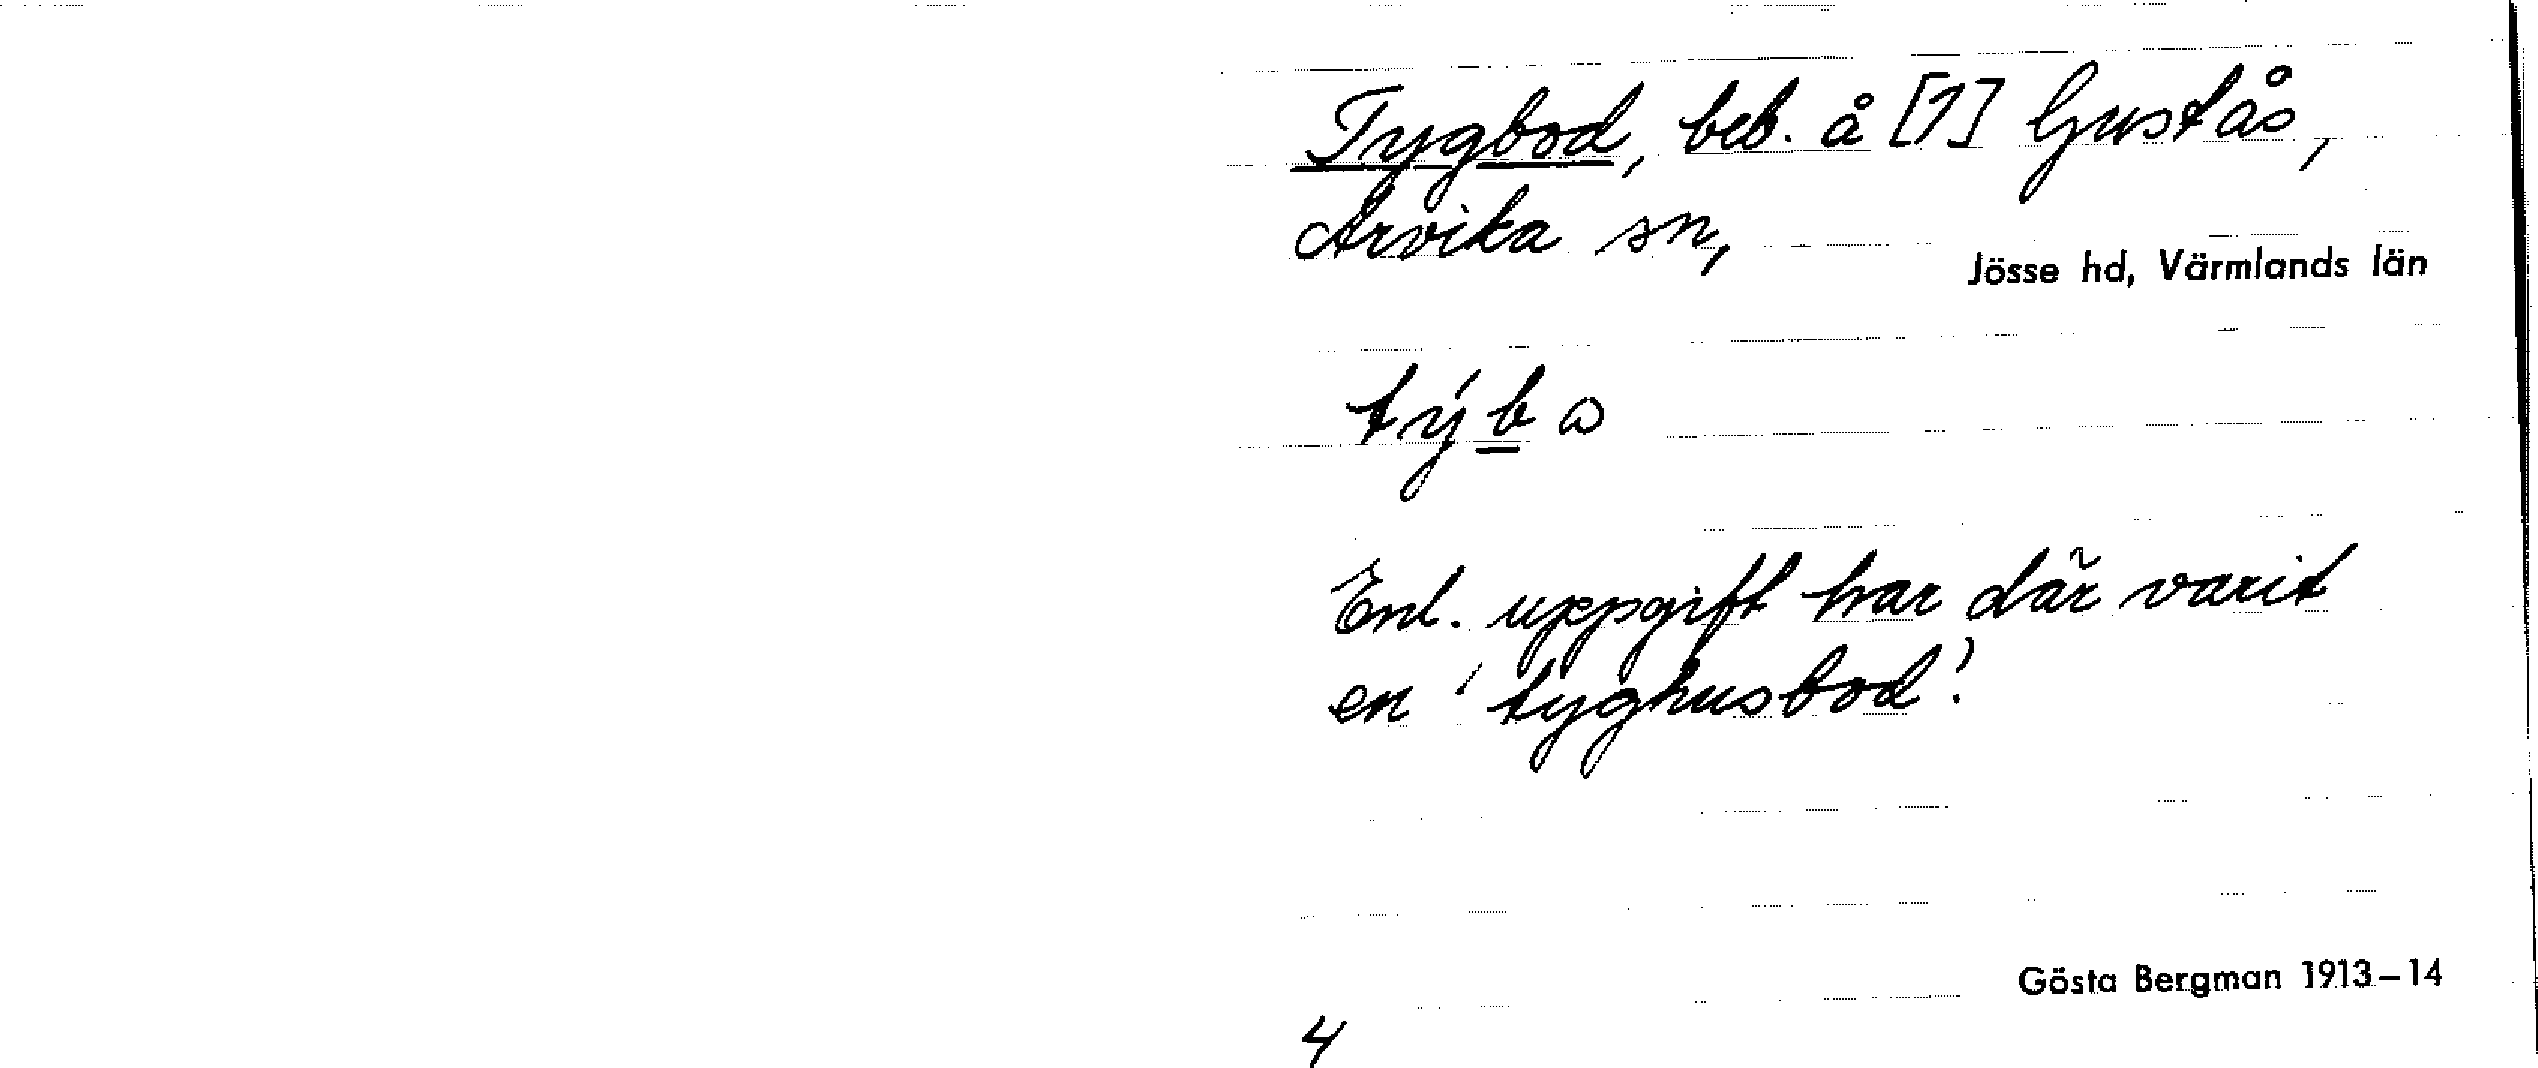 Tygbod, beb. å [1] Ljustås,
Arvika sn,
Jösse hd, Värmlands län
Enl. uppgift har där varit
en 'tyghusbod'.
Gösta Bergman 1913–14
4